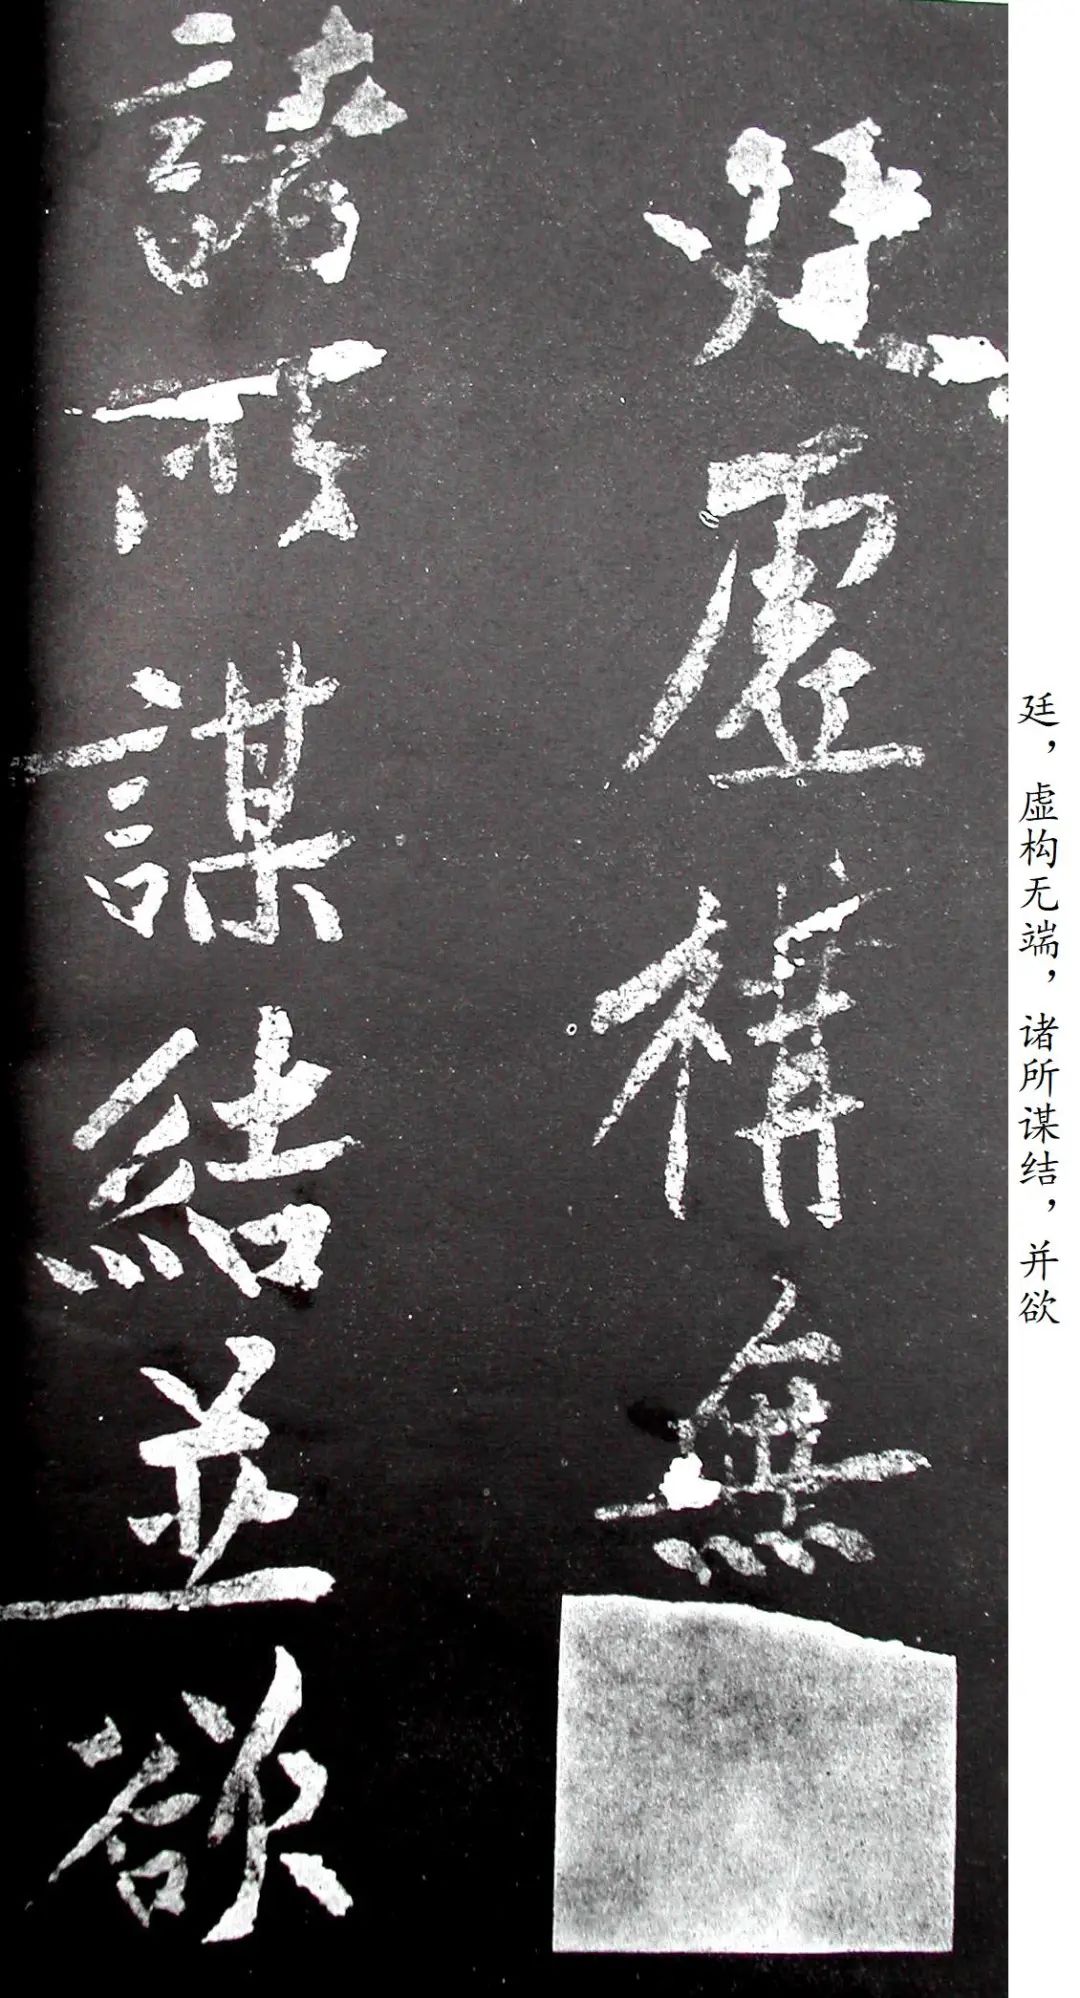 廷，虚构无端，诸所谋结，并欲
廷虛構無
諸所謀結並欲